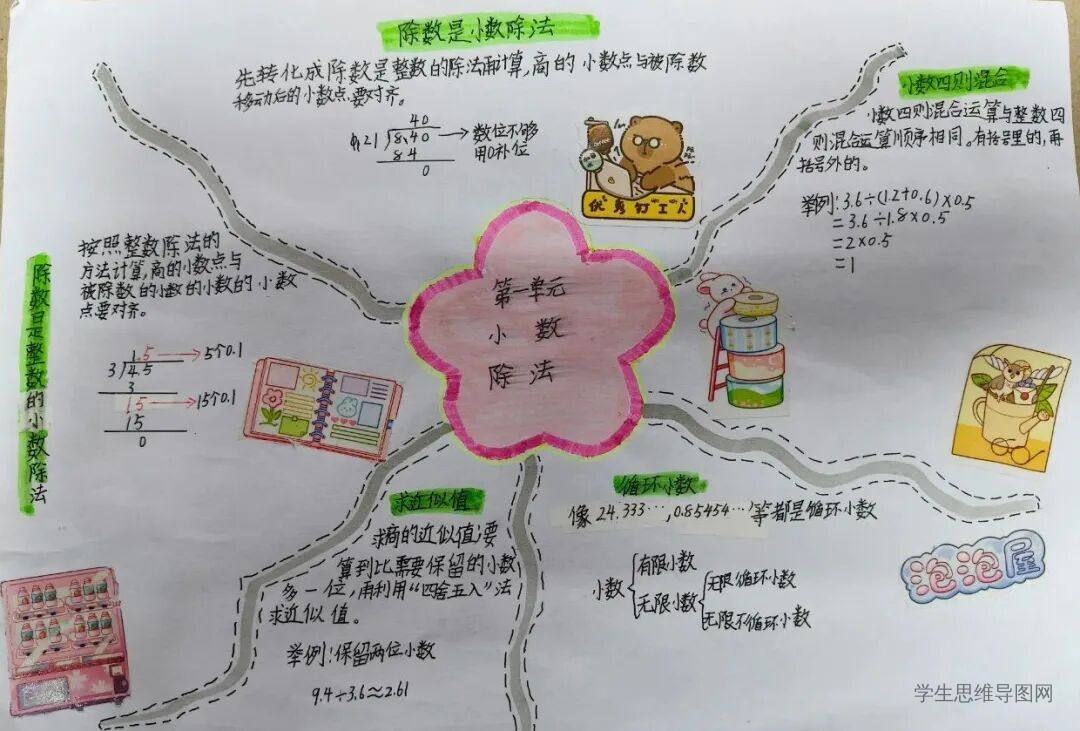 除数是小数除法
先转化成除数是整数的除法再计算,商的小数点与被除数
移动后的小数点要对齐。
40
0.21 8.40 → 数位不够
84 用0补位
0
优秀打工人
小数四则混合
小数四则混合运算与整数四
则混合运算顺序相同。有括号里的,再
括号外的。
举例:3.6÷(1.2+0.6)×0.5
=3.6÷1.8×0.5
=2×0.5
=1
除数是整数的小数除法
按照整数除法的
方法计算,商的小数点与
被除数的小数的小数的小数
点要对齐。
1.5 → 5个0.1
3 4.5
3
1.5 → 15个0.1
15
0
第一单元
小数
除法
求近似值
求商的近似值:要
算到比需要保留的小数
多一位,再利用“四舍五入”法
求近似值。
举例:保留两位小数
9.4÷3.6≈2.61
循环小数
像24.333…,0.85454…等都是循环小数
小数
有限小数
无限小数
无限循环小数
无限不循环小数
泡泡屋
学生思维导图网